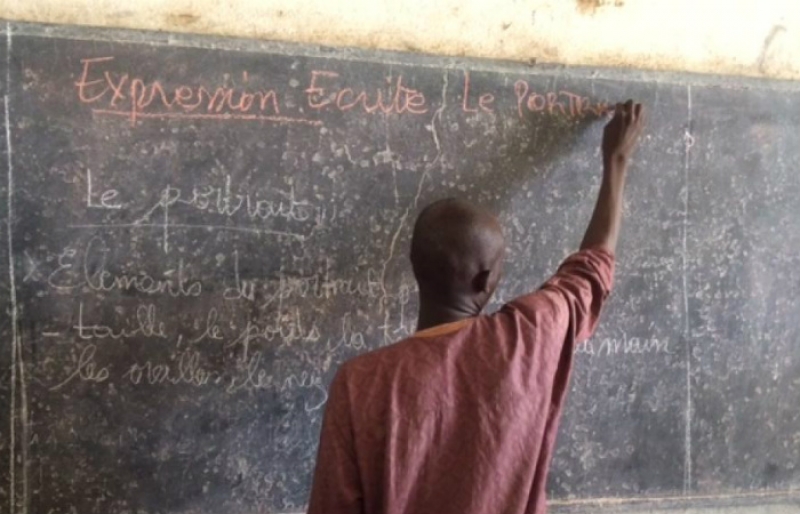 Expression Ecrite Le PORTRA
Le portrait
Elements du portrait
- taille, le poids, la main
les oreilles, le nez